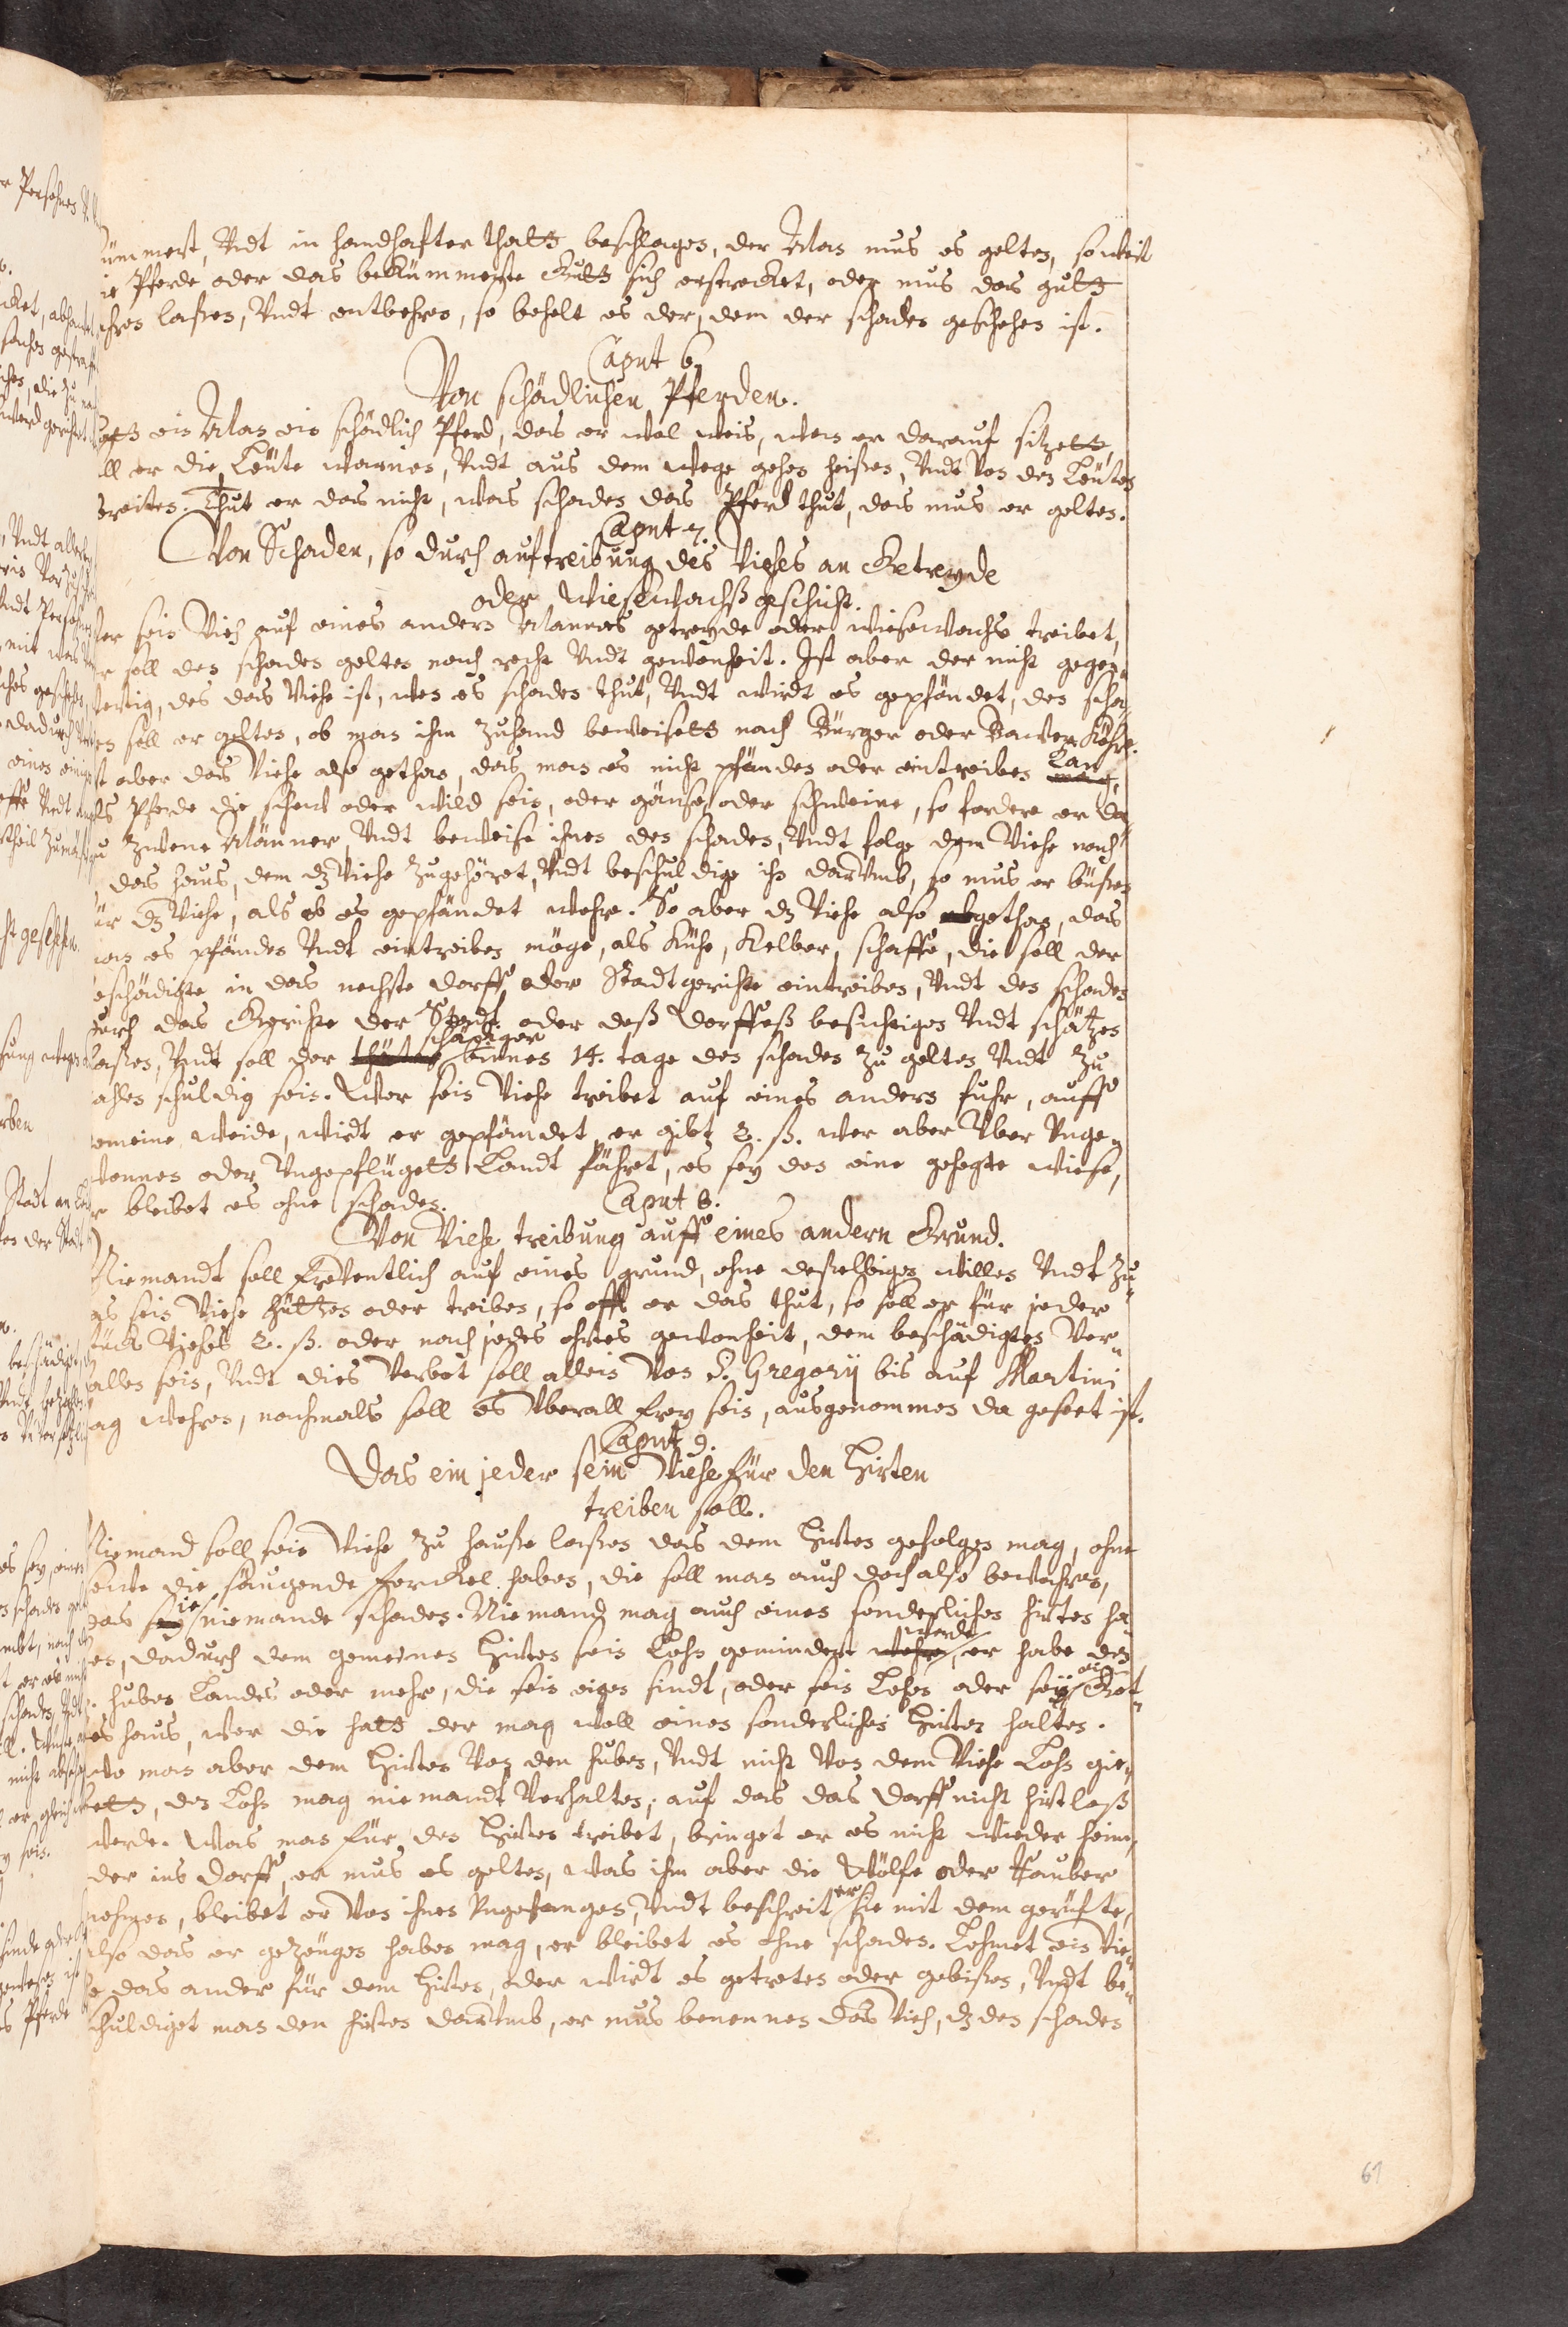 ümmert, Vndt in handhafter thatt beschlagen, der Man mus es gelten, soweit
ie Pferde oder das beKümmerte Gutt sich erstrecket, oder mus das gutt
ihren laßen, Vndt entbehren, so behelt es der, dem der schaden geschehen ist.
Caput 6.
Von schädlichen Pferden.
Hatt ein Man ein schädlich Pferd, das er wol weis, wen er darauf sitzett,
ll er die Leüte warnen, Vndt aus dem wege gehen heißen, Vndt Von den Leüten
reiten. Thut er das nicht, was schaden das Pferd thut, das mus er gelten.
Caput 7.
Von Schaden, so durch auftreibung des Viehes an Getreyde
oder Wiesewachß geschicht.
Wer sein Vieh auf eines andern Mannes getreyde oder wiesewachs treibet,
er soll den schaden gelten nach recht Vndt gewonheit. Ist aber der nicht gegen-
wertig, des das Viehe ist, wen es schaden thut, Vndt wirdt es gepfändet, den scha-
den soll er gelten, ob man ihn zuhand beweisett nach Bürger oder Bawer Kühr.
st aber das Viehe also gethan, das man es nicht pfänden oder eintreiben mag, Kan
als Pferde die scheu oder wild sein, oder gänse oder schweine, so fordere er da-
zu zwene Männer Vndt beweise ihnen den schaden, Vndt folge dem Viehe nach
das haus, dem dz Viehe zugehöret, Vndt beschuldige ihn darVmb, so mus er büßen
für dz Viehe, als ob es gepfändet wehre. So aber dz Viehe also gethan, das
man es pfänden Vndt eintreiben möge, als Kühe, Kelber, schaffe, die soll der
beschädigte in das nechste dorff oder Stadtgerichte eintreiben, Vndt den schaden
durch das Gerichte der Stadt oder deß Dorffeß besichtigen Vndt schätzen
laßen, Vndt soll der thäter schädiger binnen 14. tage den schaden zu gelten Vndt zu
zahlen schuldig sein. Wer sein Viehe treibet auf eines andern fuhr, auff
gemeine weide, wirdt er gepfändet, er gibt 2. ß. wer aber Vber Vnge-
wonnen oder Vngepflügett Landt fähret, es sey den eine gehegte wiese,
r bleibet es ohne schaden.
Caput 8.
Von Viehe treibung auff eines andern Grund.
Niemandt soll freVentlich auf eines grund, ohne deßelbigen willen Vndt zu-
s sein Viehe hütten oder treiben, so offt er das thut, so soll er für jeder
stück Viehes 2. ß. oder nach jedes ohrtes gewonheit, dem beschädigten Ver-
fallen sein, Vndt dies Verbot soll allein Von S. Gregorij bis auf Martini
tag wehren, nachmals soll es Vberall frey sein, ausgenommen da geseet ist.
Caput 9.
Das ein jeder sein Viehe für den Hirten
treiben soll.
Niemand soll sein Viehe zu hauße laßen das dem Hirten gefolgen mag, ohne
sewe die säugende ferckel haben, die soll man auch doch also bewahren,
das sie niemande schaden. Niemand mag auch einen sonderlichen hirten ha-
en, dadurch dem gemeinen Hirten sein Lohn gemindert wehre werde, er habe den
. huben Landes oder mehr, die sein eigen sindt, oder sein Lehen oder sein
es haus, wer die hatt der mag woll einen sonderlichen Hirten halten.
wo man aber dem Hirten Von den huben, Vndt nicht Von dem Viehe Lohn gie-
bett, den Lohn mag niemandt Verhalten; auf das das dorff nicht hirtloß
werde. Was man für den Hirten treibet, bringet er es nicht wieder heim,
der ins dorff, er mus es gelten, was ihm aber die Wölfe oder Rauber
nehmen, bleibet er Von ihnen Vngefangen, Vndt beschreit er sie mit dem gerüfte,
also das er gezeügen haben mag, er bleibet es ohne schaden. Lehmet ein Vie-
he das ander für dem Hirten, oder wirdt es getreten oder gebißen, Vndt be-
schuldiget man den hirten darVmb, er mus benennen das Vieh, dz den schaden
61